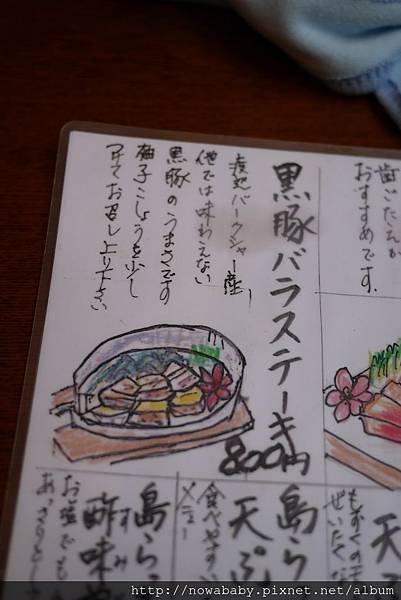 歯ごたえが
おすすめです。
黒豚バラステーキ
800円
産地バークシャー産、
他では味わえない
黒豚のうまさです
柚子こしょうを少し
つけてお召し上り下さい
もずくの天
ぜいたくな
島らっ
天ぷら
食べやすい
メニュー
島らっ
酢味
お塩でも
あっさりとし
http://nowababy.pixnet.net/album